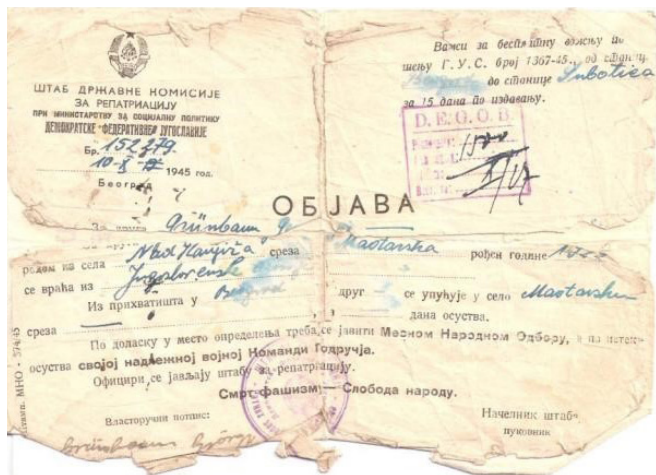 ШТАБ ДРЖАВНЕ КОМИСИЈЕ
ЗА РЕПАТРИАЦИЈУ
ПРИ МИНИСТАРСТВУ ЗА СОЦИЈАЛНУ ПОЛИТИКУ
ДЕМОКРАТСКЕ ФЕДЕРАТИВНЕ ЈУГОСЛАВИЈЕ
Бр. 152379.
10-X 1945 год.
Београд
Важи за бесплатну вожњу по
Г.У.С. број 1367-45., од станице
Beograd до станице Subotica
за 15 дана по издавању.
D. E. O. O. B.
ОБЈАВА
За друга Grünbaum
родом из села срезa рођен године
се враћа из Jugoslovensk
Из прихватишта у Beograd друг се упућује у село
среза дана осуства.
По доласку у место определења треба се јавити Месном Народном Одбору, а по
осуства својој надлежној војној Команди Подручја.
Официри се јављају штабу за репатриацију.
Смрт фашизму — Слобода народу.
Власторучни потпис:
Grünbaum György
Начелник штаба
пуковник
Штамп. МНО - 574/45